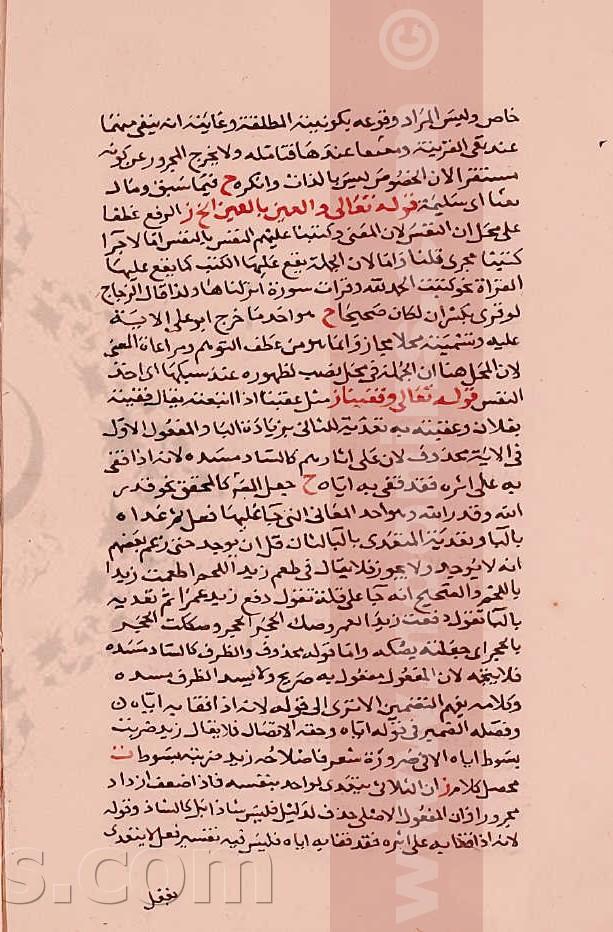 خاص وليس المراد وقوعه بكونيته المطلقة وغايته انه ينفى مبهما
عند نفى القرينة ومتعينا عندها فتامله ولا يخرج المجرور عن كونه
مستقرا لان الخصوص ليس بالذات وانكره ح فيما سبق ومال
هنا اى سليمة قوله تعالى والعين بالعين الخ ز الرفع عطفا
على محل ان النفس لان المعنى وكتبنا عليهم النفس بالنفس اما لاجرا
كتبنا مجرى قلنا واما لان الجملة يقع عليها الكتب كما يقع عليها
القراة نحو كتبت الحمد لله وقرات سورة انزلناها ولذا قال الزجاج
لو قرى بكسر ان لكان صحيحا ح هو احد ما خرج ابو على الاية
عليه وتسميته محلا مجاز وانما هو من عطف التوهم ومراعاة المعنى
لان المحل هنا ان الجملة فى محل نصب لظهوره عند سبكها اى اخذ
النفس قوله تعالى وقفينا ز مثل عقبته اذا اتبعته يقال قفيته
بفلان وعقبته به تعدية للثانى بزيادة البا والمفعول الاول
فى الاية محذوف لان على اثارهم كالساد مسده لانه اذا قفى
به على اثره فقد قفى به اياه ح جعل المشدد كالمحقق نحو قدر
الله وقدر الله وهو احد المعانى التى جا عليها فعل ثم عداه
بالبا وتعدية المتعدى بالبا لثان قل ان يوجد حتى زعم بعضهم
انه لا يوجد ولا يجوز فلا يقال فى طعم زيد اللحم اطعمت زيدا
باللحم والصحيح انه جا على قلة تقول دفع زيد عمرا ثم تعديه
بالبا تقول دفعت زيدا بعمرو وصك الحجر الحجر وصككت الحجر
بالحجر اى جعلته يصكه واما قوله محذوف والظرف كالساد مسده
فلا يتجه لان المفعول مفعول به صريح ولا يسد الظرف مسده
وكلامه يفهم التضمين الا ترى الى قوله لانه اذا قفا به اياه
وفصله الضمير فى قوله اياه وحقه الاتصال فلا يقال زيد ضربت
بسوط اياه الا فى ضرورة شعر فاصلاحه زيد ضربته بسوط ت
محصل كلام ز ان الثلاثى يتعدى لواحد بنفسه فاذا ضعف ازداد
مجرورا وان المفعول الاصلى حذف لدليل فليس شاذا بل كالشاذ وقوله
لانه اذا قفا به على اثره فقد قفا به اياه فليس فيه تفسير فعل لا يتعدى
s.com
©